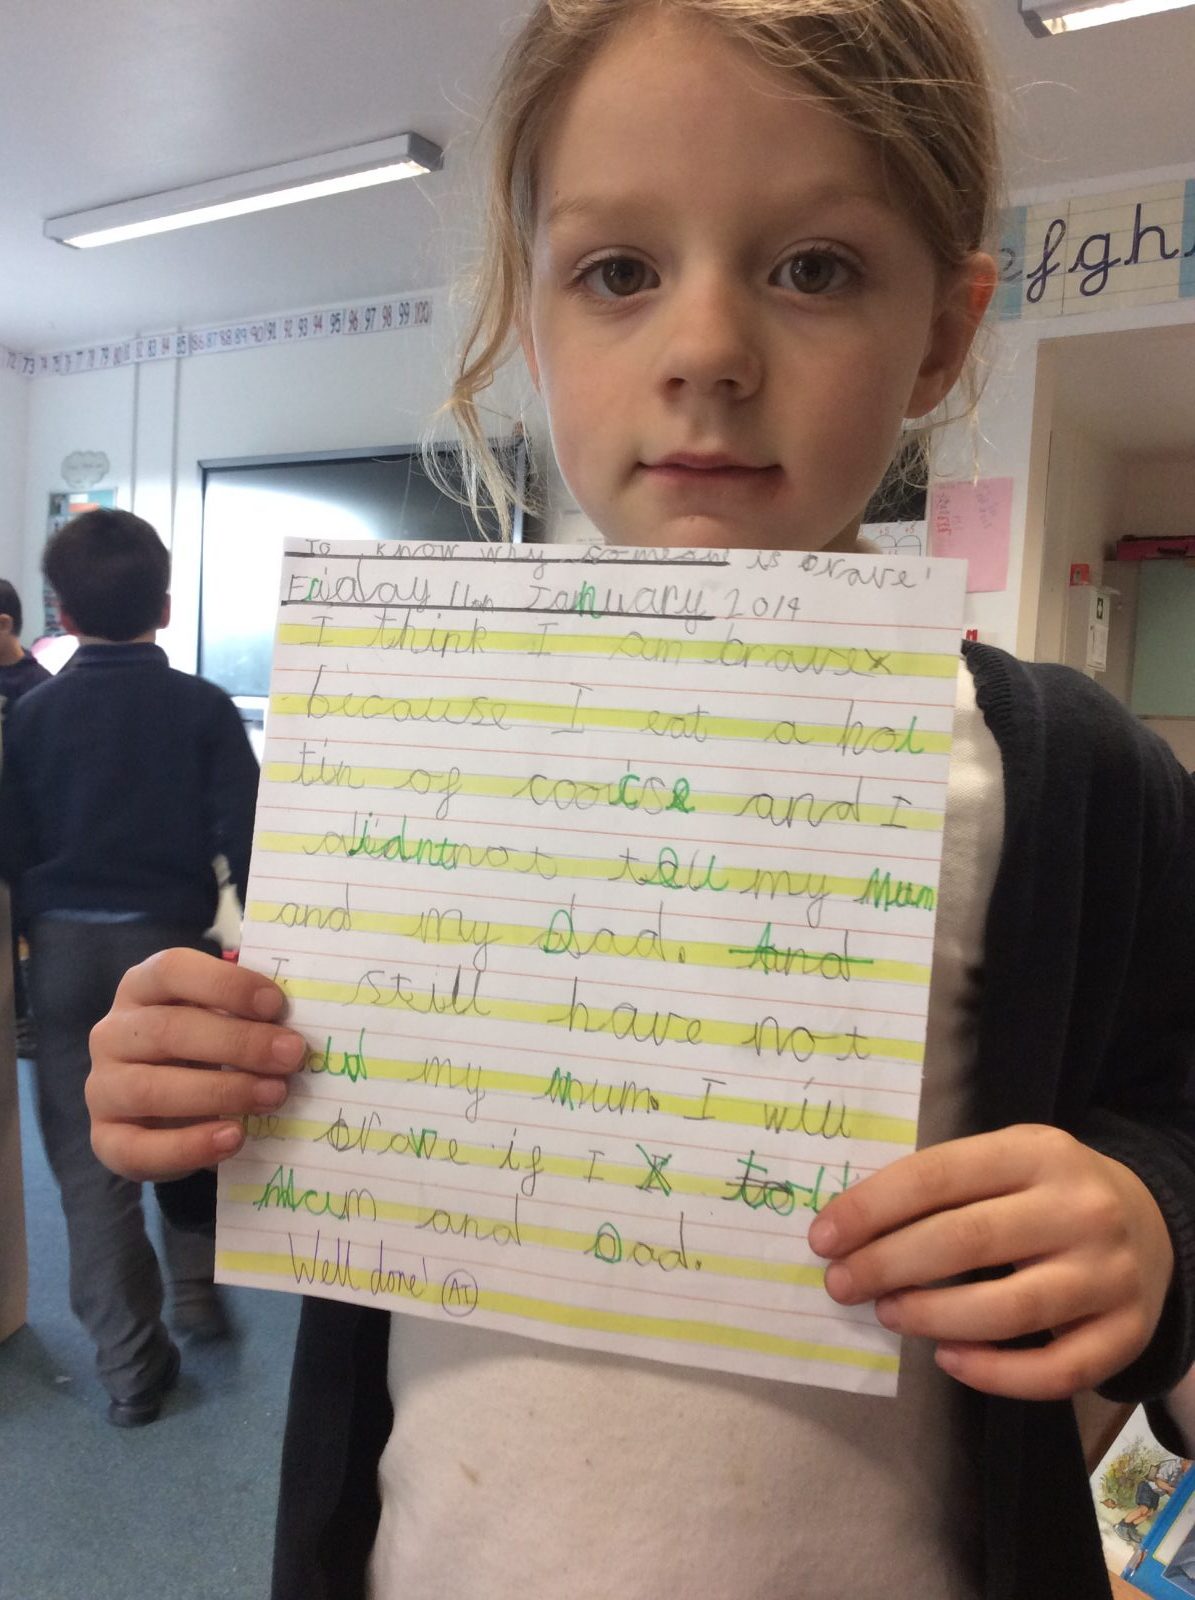 72 73 74 75 76 77 78 79 80 81 82 83 84 85 86 87 88 89 90 91 92 93 94 95 96 97 98 99 100
f g h
To know why someone is brave!
Friday 11th January 2019
I think I am brave
because I eat a hol
tin of and I
didnt not tell my Mum
and my Dad. And
I still have not
my Mum. I will
be brave if I told
Mum and Dad.
Well done! AT